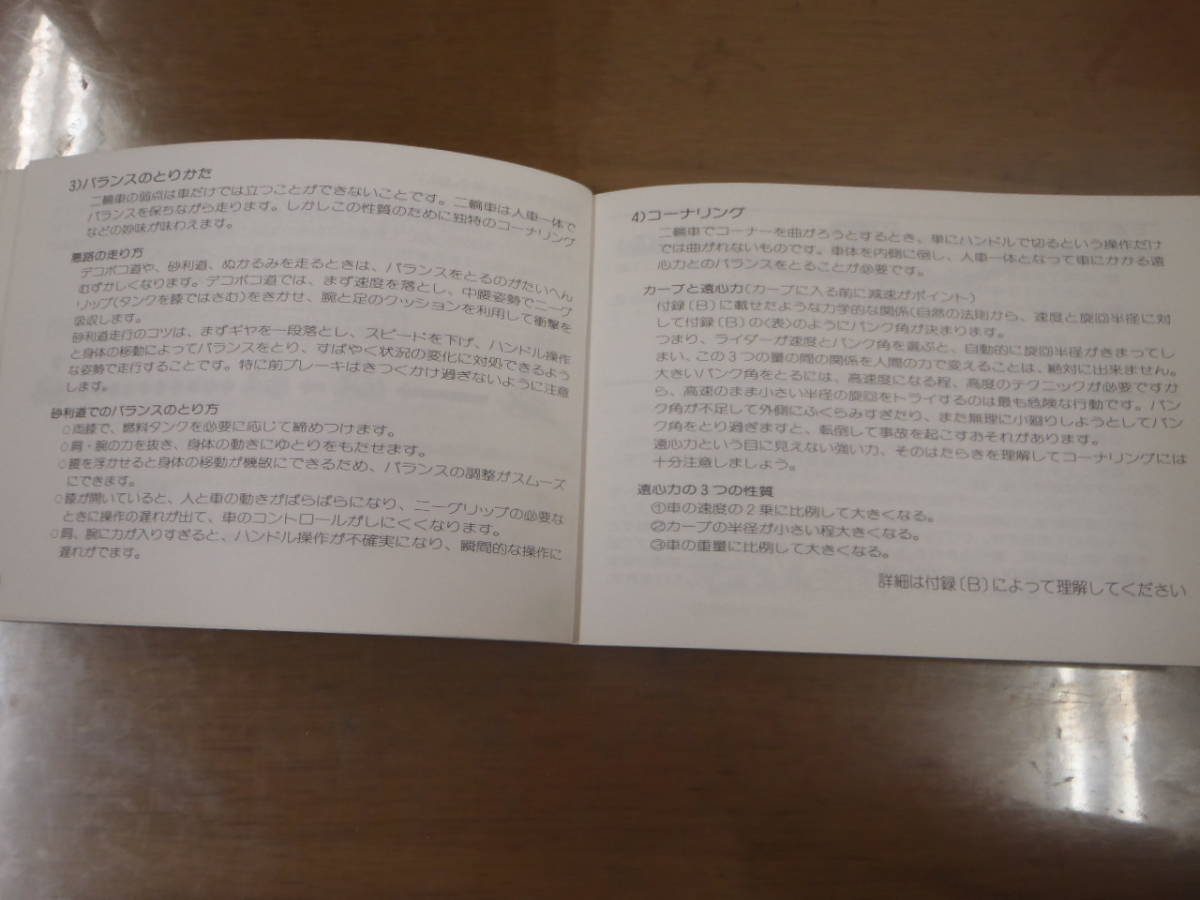 3)バランスのとりかた
二輪車の弱点は車だけでは立つことができないことです。二輪車は人車一体で
バランスを保ちながら走ります。しかしこの性質のために独特のコーナリング
などの妙味が味わえます。
悪路の走り方
デコボコ道や、砂利道、ぬかるみを走るときは、バランスをとるのがたいへん
むずかしくなります。デコボコ道では、まず速度を落とし、中腰姿勢でニーグ
リップ(タンクを膝ではさむ)をきかせ、腕と足のクッションを利用して衝撃を
吸収します。
砂利道走行のコツは、まずギヤを一段落とし、スピードを下げ、ハンドル操作
と身体の移動によってバランスをとり、すばやく状況の変化に対処できるよう
な姿勢で走行することです。特に前ブレーキはきつくかけ過ぎないように注意
します。
砂利道でのバランスのとり方
○両膝で、燃料タンクを必要に応じて締めつけます。
○肩・腕の力を抜き、身体の動きにゆとりをもたせます。
○腰を浮かせると身体の移動が機敏にできるため、バランスの調整がスムーズ
にできます。
○膝が開いていると、人と車の動きがばらばらになり、ニーグリップの必要な
ときに操作の遅れが出て、車のコントロールがしにくくなります。
○肩、腕に力が入りすぎると、ハンドル操作が不確実になり、瞬間的な操作に
遅れがでます。
4)コーナリング
二輪車でコーナーを曲がろうとするとき、単にハンドルで切るという操作だけ
では曲がれないものです。車体を内側に倒し、人車一体となって車にかかる遠
心力とのバランスをとることが必要です。
カーブと遠心力(カーブに入る前に減速がポイント)
付録(B)に載せたような力学的な関係(自然の法則から、速度と旋回半径に対
して付録(B)の〈表〉のようにバンク角が決まります。
つまり、ライダーが速度とバンク角を選ぶと、自動的に旋回半径がきまってし
まい、この3つの量の間の関係を人間の力で変えることは、絶対に出来ません。
大きいバンク角をとるには、高速度になる程、高度のテクニックが必要ですか
ら、高速のまま小さい半径の旋回をトライするのは最も危険な行動です。バン
ク角が不足して外側にふくらみすぎたり、また無理に小廻りしようとしてバン
ク角をとり過ぎますと、転倒して事故を起こすおそれがあります。
遠心力という目に見えない強い力、そのはたらきを理解してコーナリングには
十分注意しましょう。
遠心力の3つの性質
①車の速度の2乗に比例して大きくなる。
②カーブの半径が小さい程大きくなる。
③車の重量に比例して大きくなる。
詳細は付録(B)によって理解してください